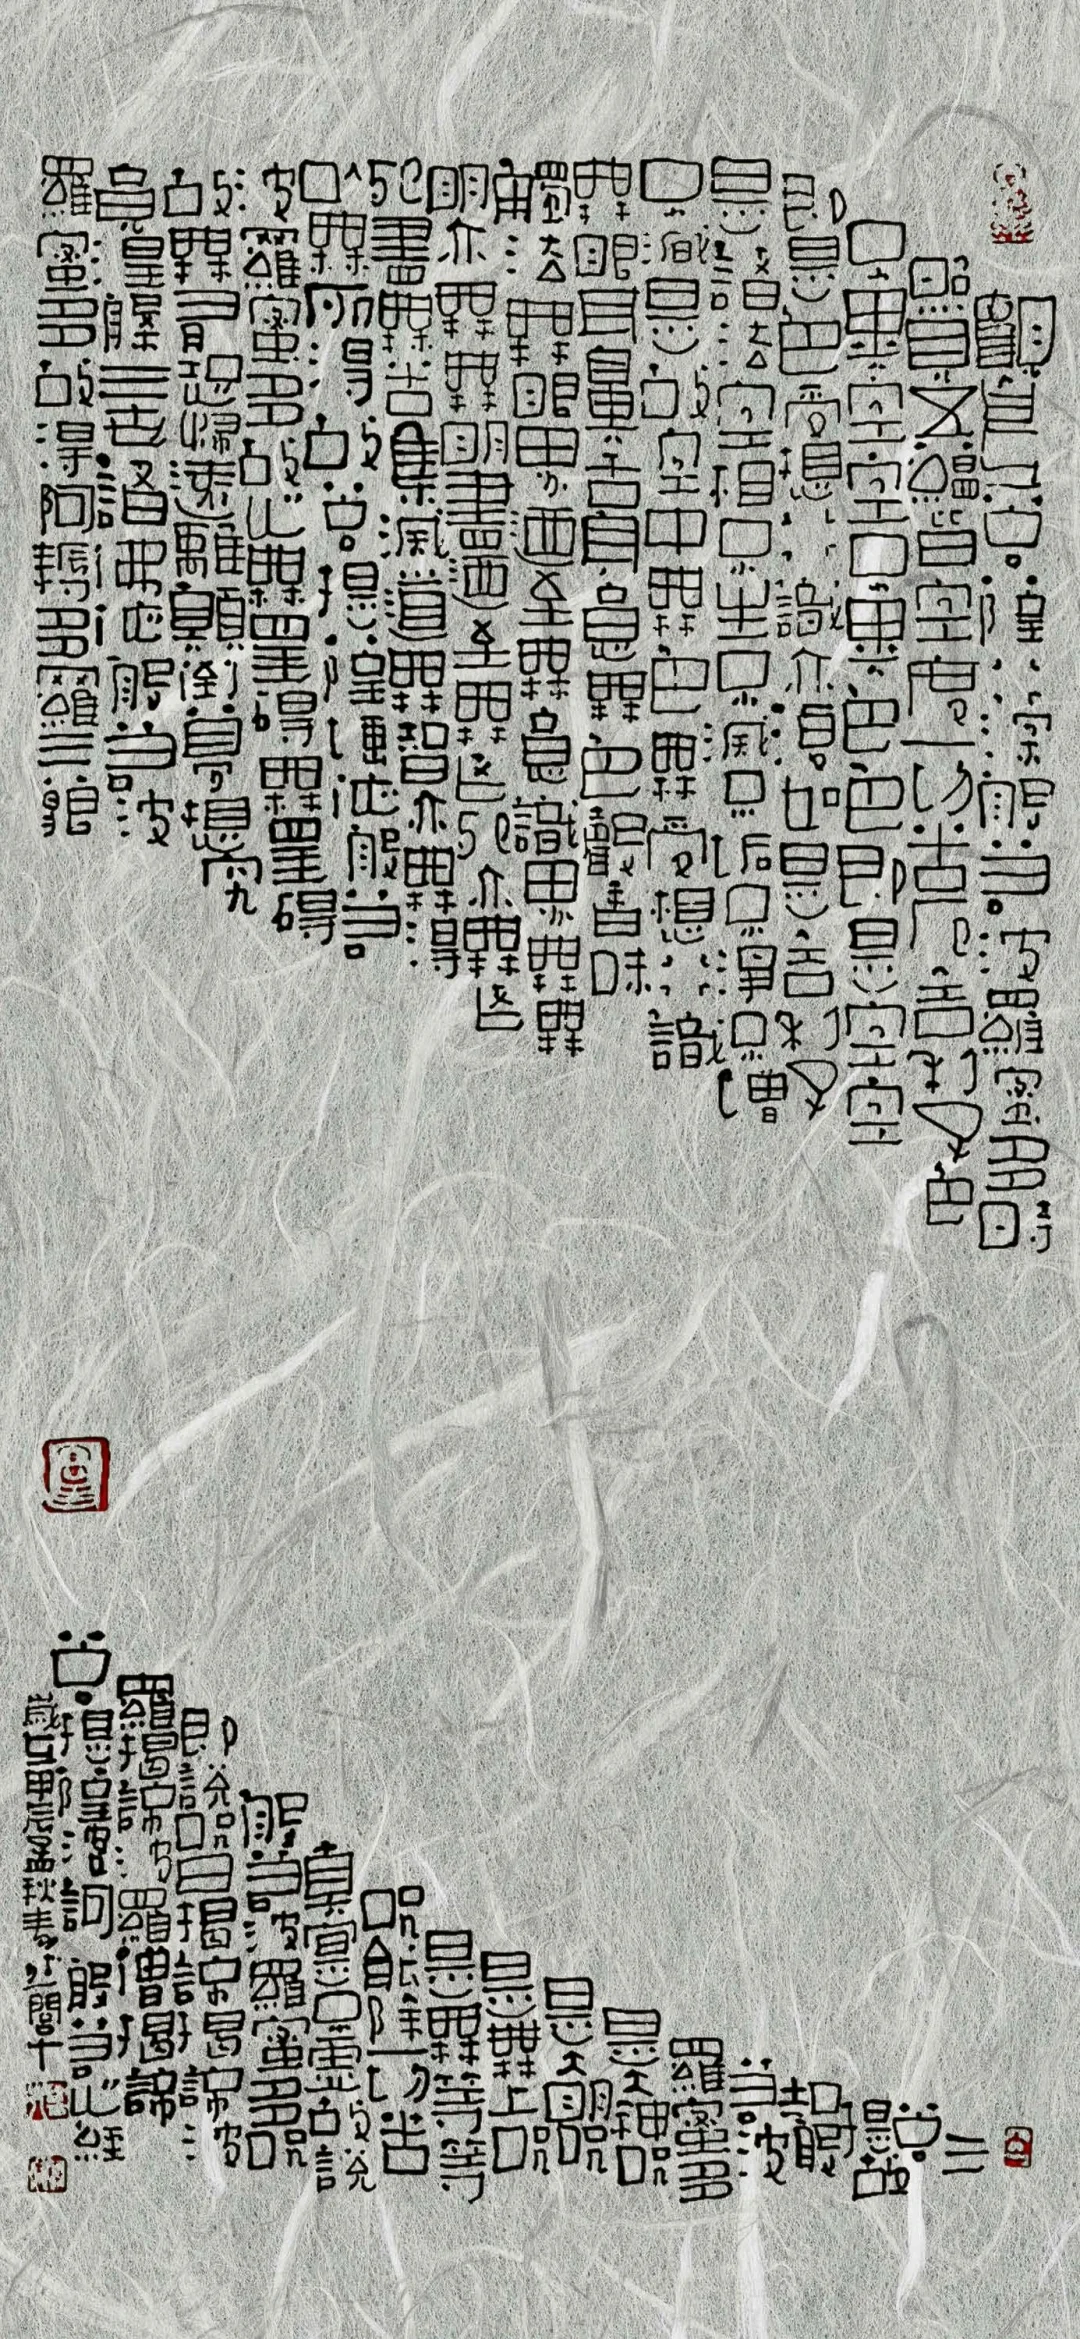 觀自在菩薩行深般若波羅蜜多時
照見五蘊皆空度一切苦厄舍利子色
不異空空不異色色即是空空
即是色受想行識亦復如是舍利子
是諸法空相不生不滅不垢不淨不增
不減是故空中無色無受想行識
無眼耳鼻舌身意無色聲香味
觸法無眼界乃至無意識界無無
明亦無無明盡乃至無老死亦無老
死盡無苦集滅道無智亦無得
以無所得故菩提薩埵依般若
波羅蜜多故心無罣礙無罣礙
故無有恐怖遠離顛倒夢想究
竟涅槃三世諸佛依般若波
羅蜜多故得阿耨多羅三藐
三
菩提故
知般
若波
羅蜜多
是大神咒
是大明咒
是無上咒
是無等等
咒能除一切苦
真實不虛故說
般若波羅蜜多咒
即說咒曰揭諦揭諦波
羅揭諦波羅僧揭諦
菩提薩婆訶般若心經
歲在甲辰孟秋書於